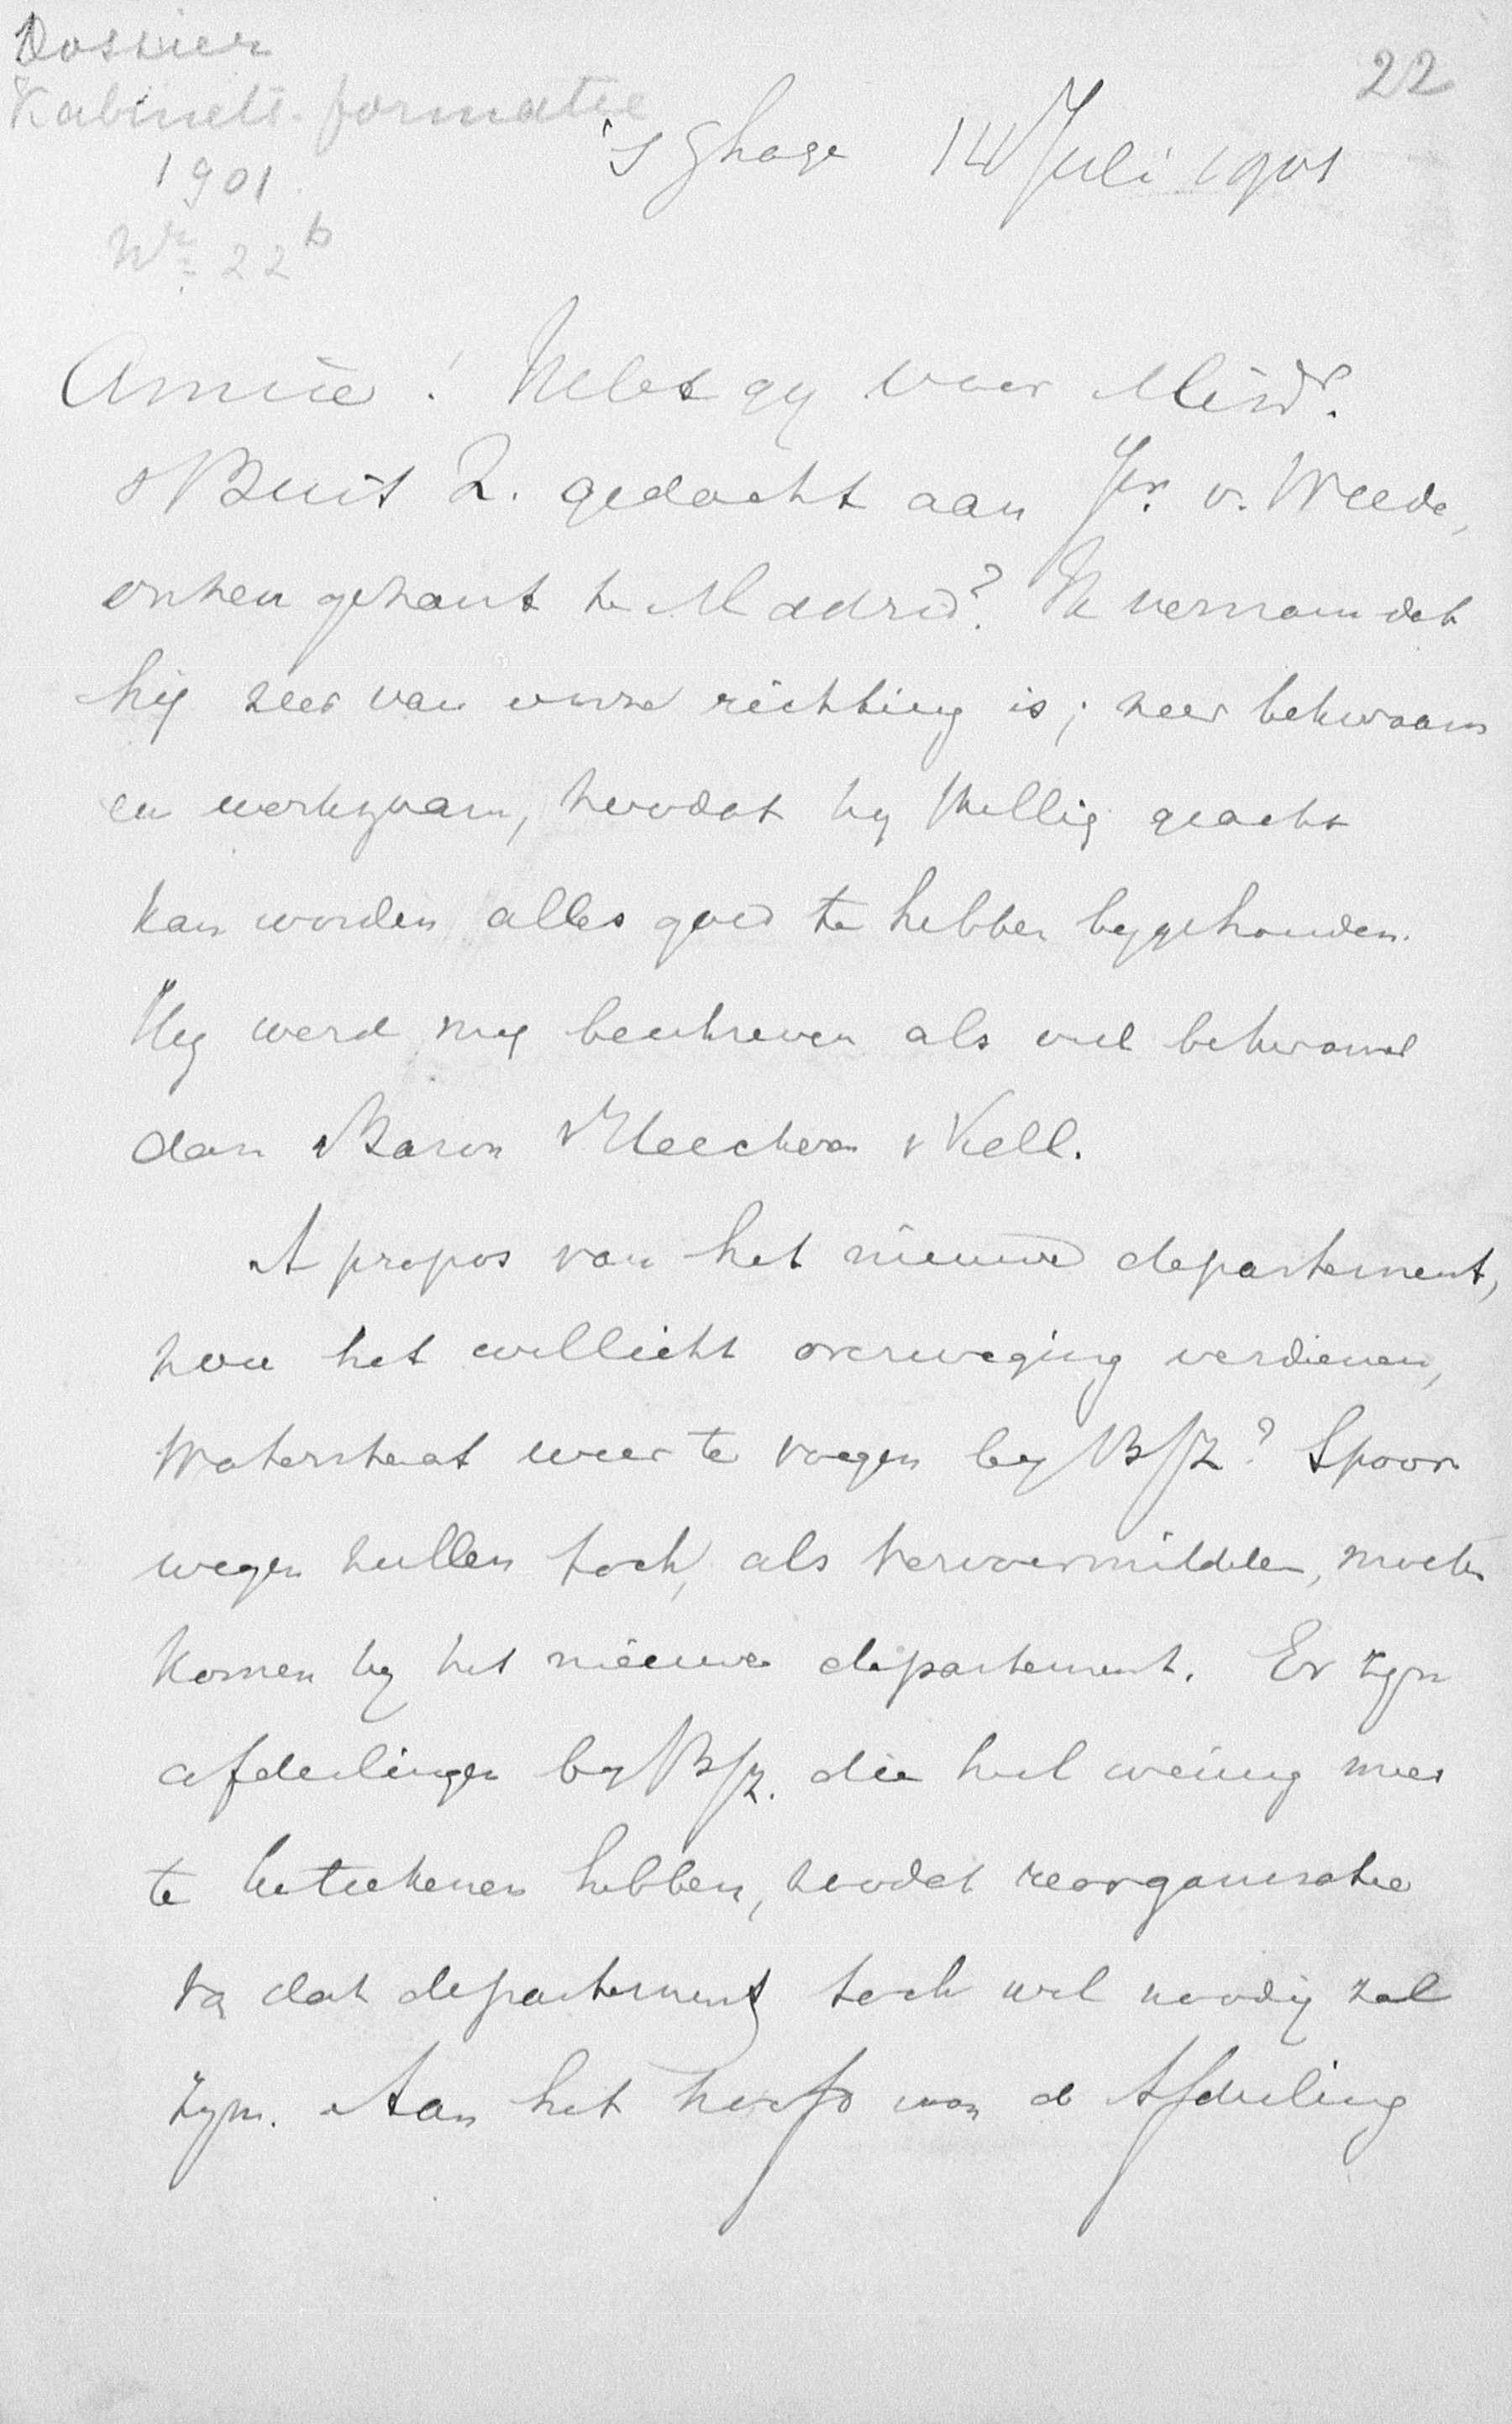 Dossier
22
Kabinets-formatie
's Ghage 14 Juli 1901
1901.
Nr. 22b
Amice! Hebt gy voor Minr.
v Buit Z. gedacht aan Jhr. v. Weede,
onzen gezant te Madrid? Ik vernam dat
hij zeer van onze richting is; zeer bekwaam
en werkzaam, zoodat hy billig geacht
kan worden alles goed te hebben bygehouden.
Hy werd my beschreven als veel bekwamer
dan Baron v Heeckeren v Kell.
A propos van het nieuwe departement,
zou het wellicht overweging verdienen,
Waterstaat weer te voegen by B/Z? Spoor
wegen zullen toch, als vervoermiddelen, moeten
komen by het nieuwe departement. Er zyn
afdeelingen by B/Z. die heel weinig meer
te beteekenen hebben, zoodat reorganisatie
va dat departement toch wel noodig zal
zyn. Aan het hoofd van de Afdeeling